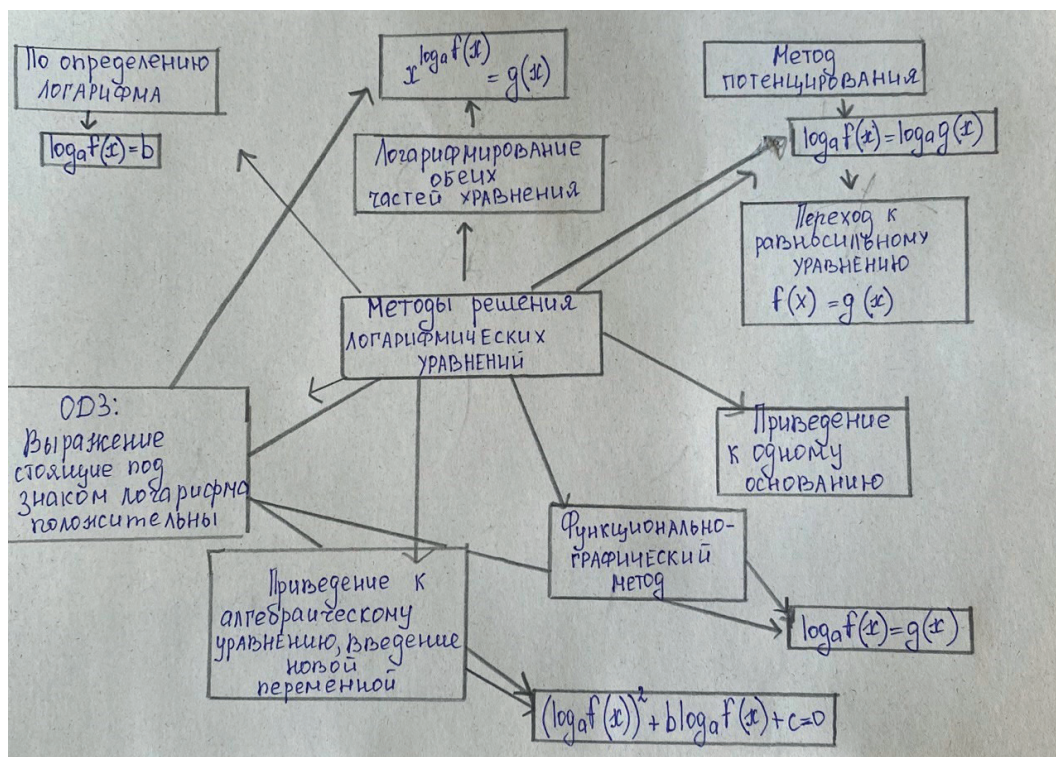 По определению
логарифма
logₐf(x)=b
x^logₐf(x) = g(x)
Логарифмирование
обеих
частей уравнения
Метод
потенцирования
logₐf(x)=logₐg(x)
Переход к
равносильному
уравнению
f(x) = g(x)
Методы решения
логарифмических
уравнений
ОДЗ:
Выражение
стоящие под
знаком логарифма
положительны
Приведение
к одному
основанию
Функционально-
графический
метод
logₐf(x)=g(x)
Приведение к
алгебраическому
уравнению, введение
новой
переменной
(logₐf(x))²+blogₐf(x)+c=0